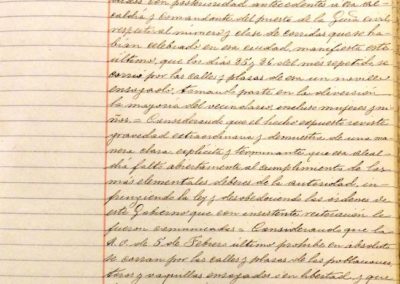 con posterioridad antecedentes a esa Al-
caldia y Comandante del puesto de la Guardia civil
respecto al número y clase de corridas que se ha-
bian celebrado en esa ciudad, manifiesta este
último, que los dias 25 y 26 del mes repetido se
corrio por las calles y plazas de esa un novillo
ensogado, tomando parte en la diversión
la mayoria del vecindario, incluso mujeres y ni-
ños. = Considerando que el hecho expuesto reviste
gravedad extraordinaria y demuestra de una ma-
nera clara explicita y terminante que esa Alcal-
dia faltó abiertamente al cumplimiento de los
más elementales deberes de la autoridad, in-
fringiendo la ley y desobedeciendo las órdenes de
este Gobierno que con insistente reiteración le
fueron comunicadas = Considerando que la
R. O. de 5 de Febrero último prohibe en absoluto
se corran por las calles y plazas de las poblaciones
toros y vaquillas ensogados ó en libertad, y que